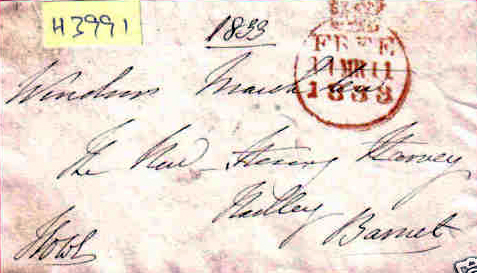 H3991
1833
FREE
11 MR 11
1833
Windsor March
The Rev Henry Harvey
Hadley
Barnet
Howe